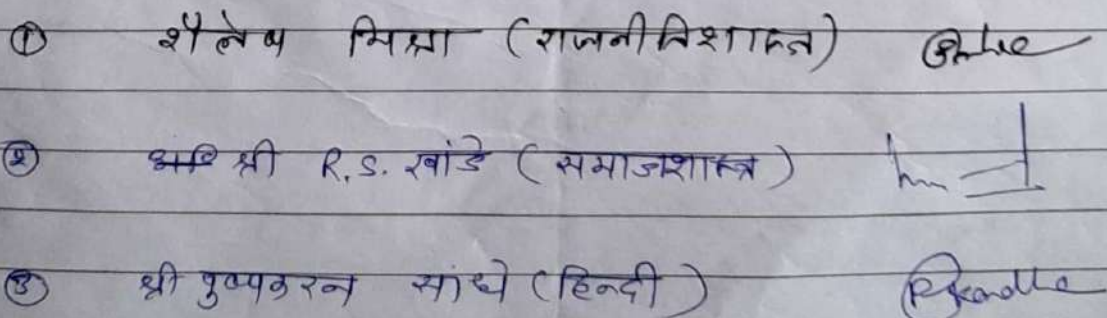 ① शैलेष मिश्रा (राजनीतिशास्त्र)
② श्री R.S. खांडे (समाजशास्त्र)
③ श्री पुष्पकरन सांधे (हिन्दी)